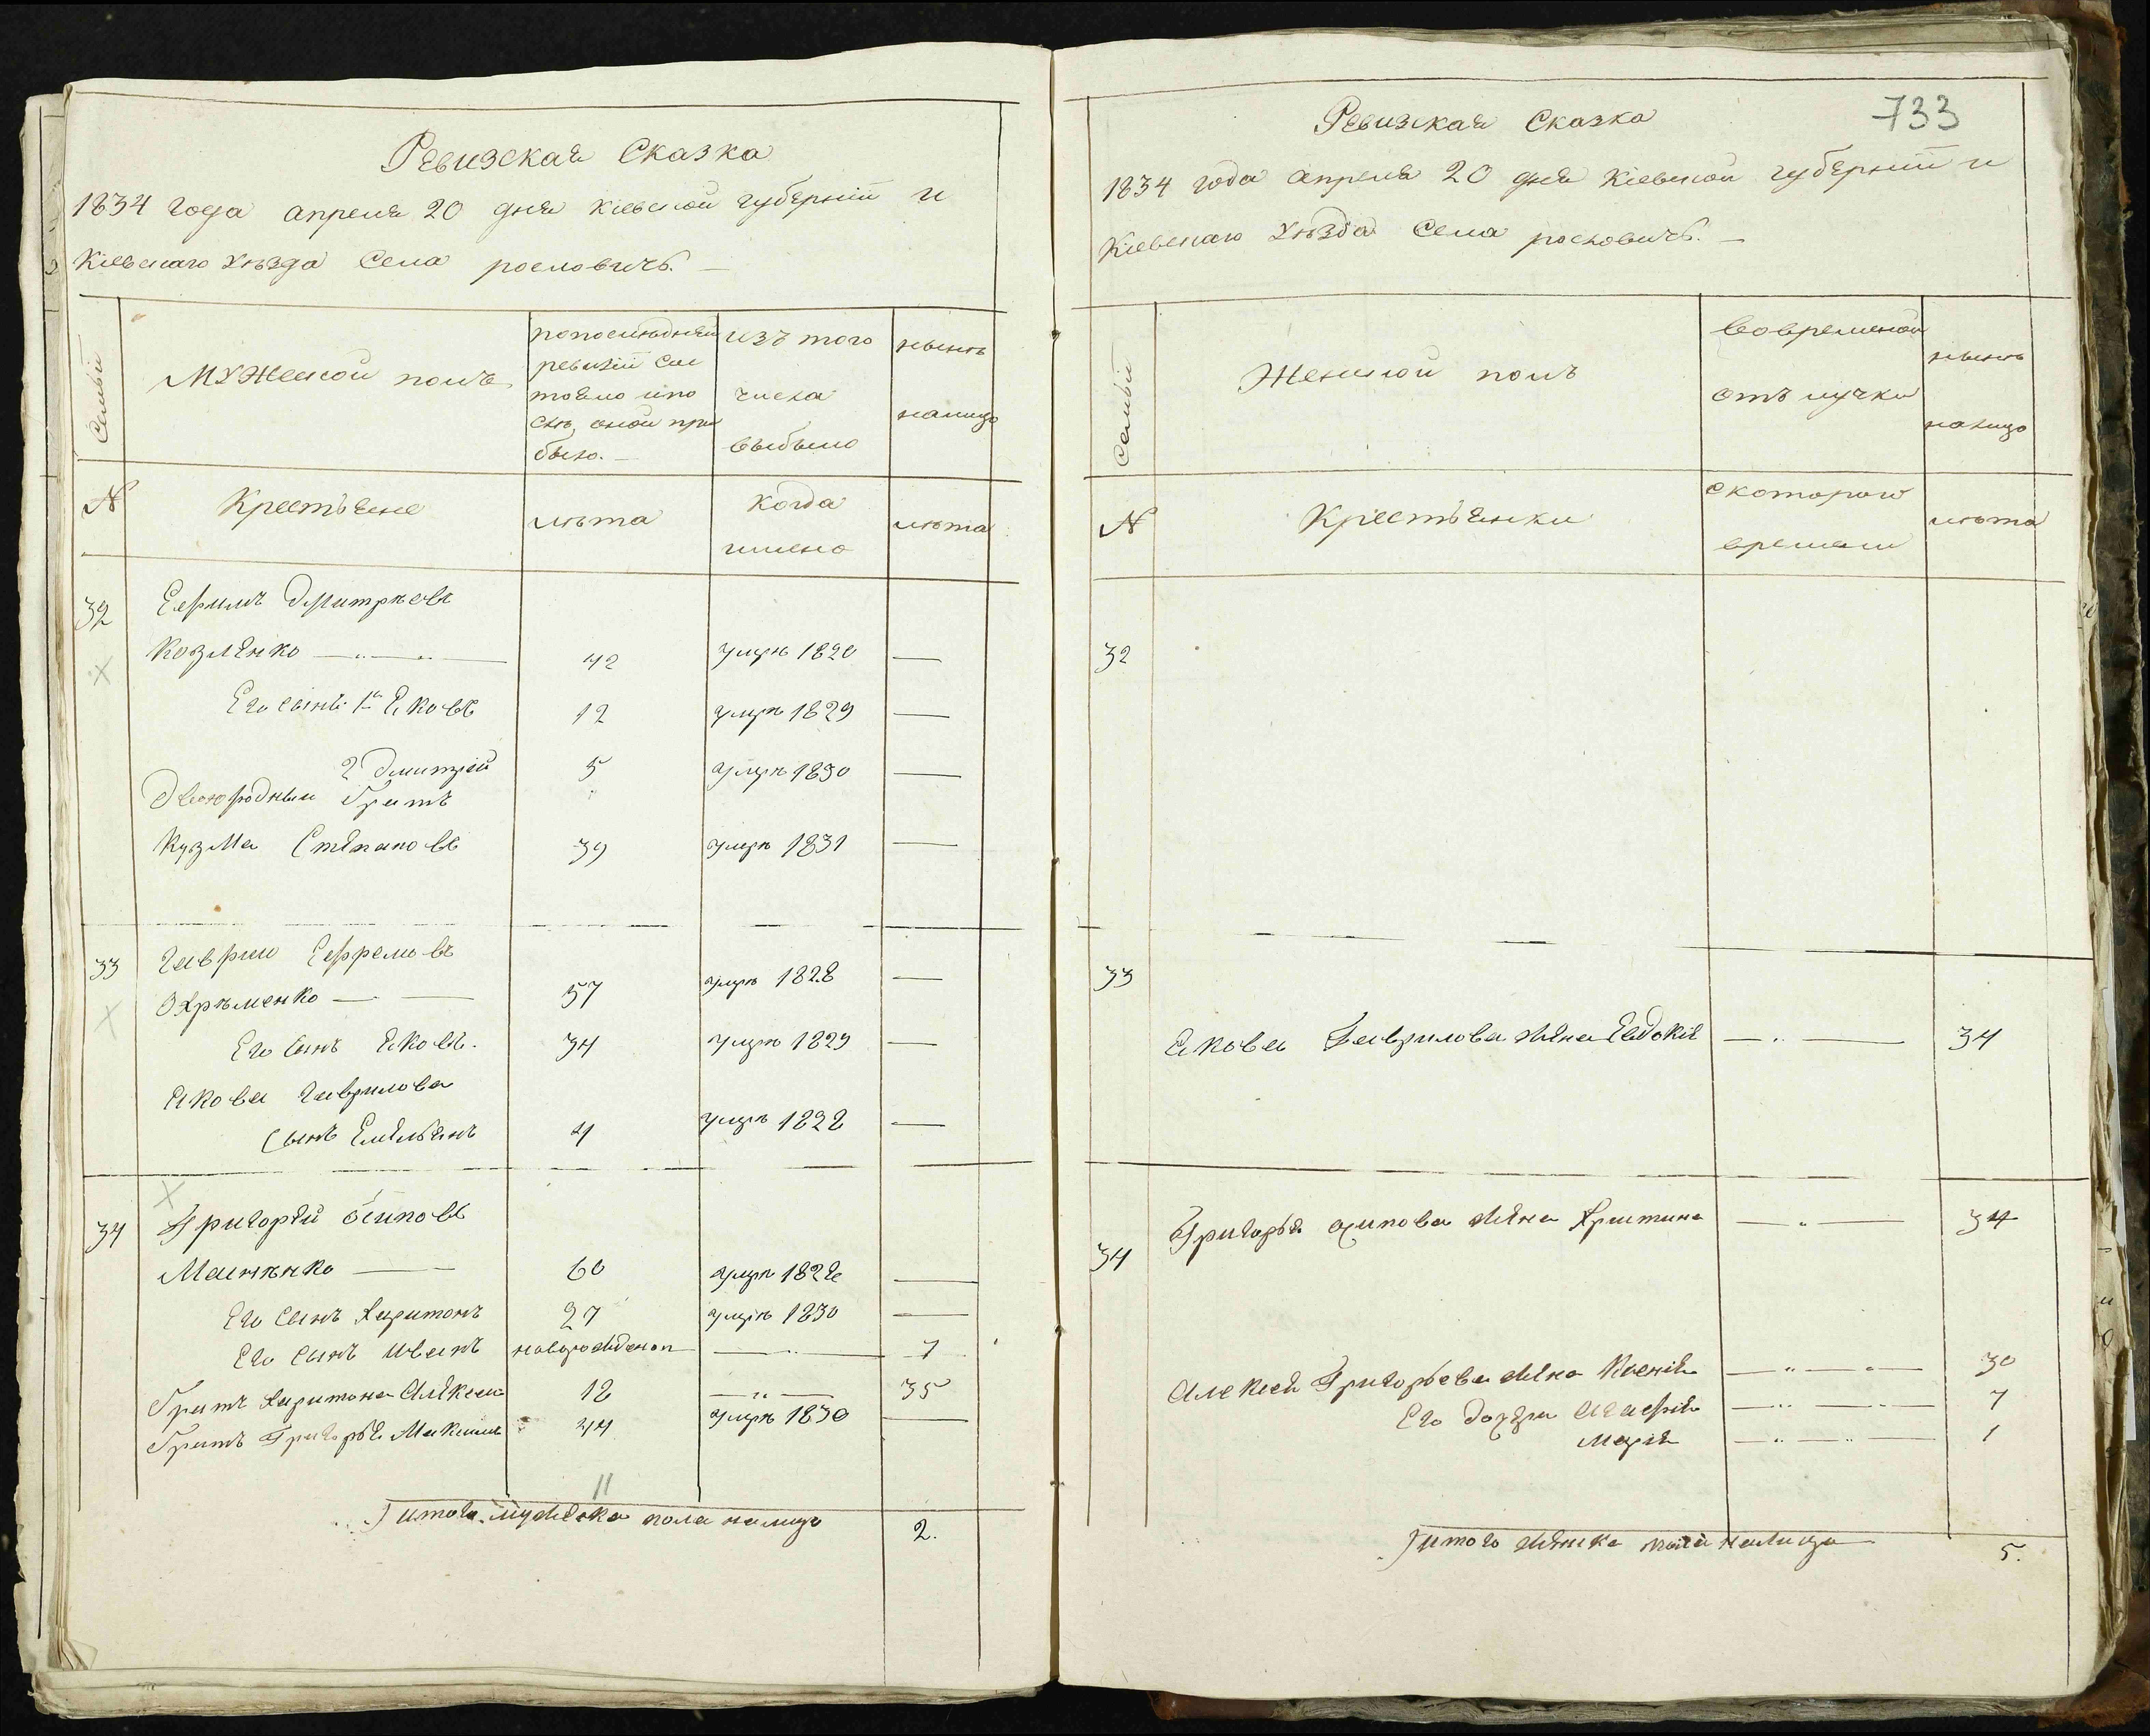 Ревизская Сказка
1834 года апреля 20 дня Кіевской губерніи и
Кіевскаго Уѣзда Села рословичъ. —
Семьи
Мужеской полъ
попослѣдней ревизіи сос тояло ипо слѣ оной при было. —
изъ того числа выбыло
нынѣ налицо
N
Крестьяне
лѣта
когда имено
лѣта
32 Ефимъ Дмитрѣевъ
Козленко — „ — „ — 42 умрѣ 1820 —
Его сынъ 1й Яковъ 12 умрѣ 1829 —
2 Дмитрій 5 умрѣ 1830 —
Двоюродный братъ
Кузма Степановъ 39 умрѣ 1831 —
33 Гаврило Ефремовъ
Охрѣменко — — 57 умрѣ 1828 —
Его сынъ Яковъ. 34 умрѣ 1829 —
Якова Гаврилова
Сынъ Емельянъ 4 умрѣ 1828 —
34 Григорѣй Осиповъ
— 60 умрѣ —
Его сынъ Харитонъ 27 умрѣ 1830 —
Его сынъ Иванъ новорожденоп — „ — 7
братъ Харитона Алексей 18 — „ — 35
братъ Григорья Максимъ 44 умрѣ 1830 —
11
Итого мужеска пола налицо 2.
733
Ревизская Сказка
1834 года апреля 20 дня Кіевской губерніи и
Кіевскаго Уѣзда Села рословичъ. —
Семьи
Женской полъ
Вовременой отълучки
нынѣ налицо
N
Крестьянки
скотораго времени
лѣта
32
33
Якова Гаврилова жена Евдокія — „ — 34
34 Григорья осипова жена Христина — „ — 34
Алексея Григорьева жена Ксенія — „ — „ — 30
Его дочери Агафія — „ — „ — 7
Марія — „ — „ — 1
Итого женска пола налицо 5.